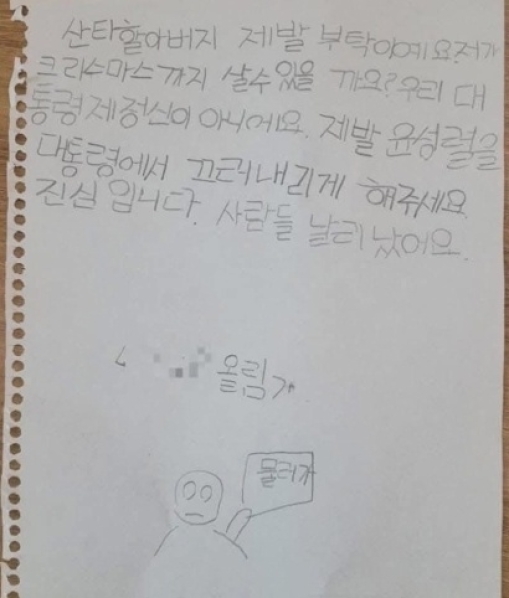 산타할아버지 제발 부탁이예요. 저가
크리스마스까지 살수있을 까요? 우리 대
통령제정신이 아니에요. 제발 윤성렬을
대통령에서 끄러내리게 해주세요
진심 입니다. 사람들 날리 났어요.
올림
물러가